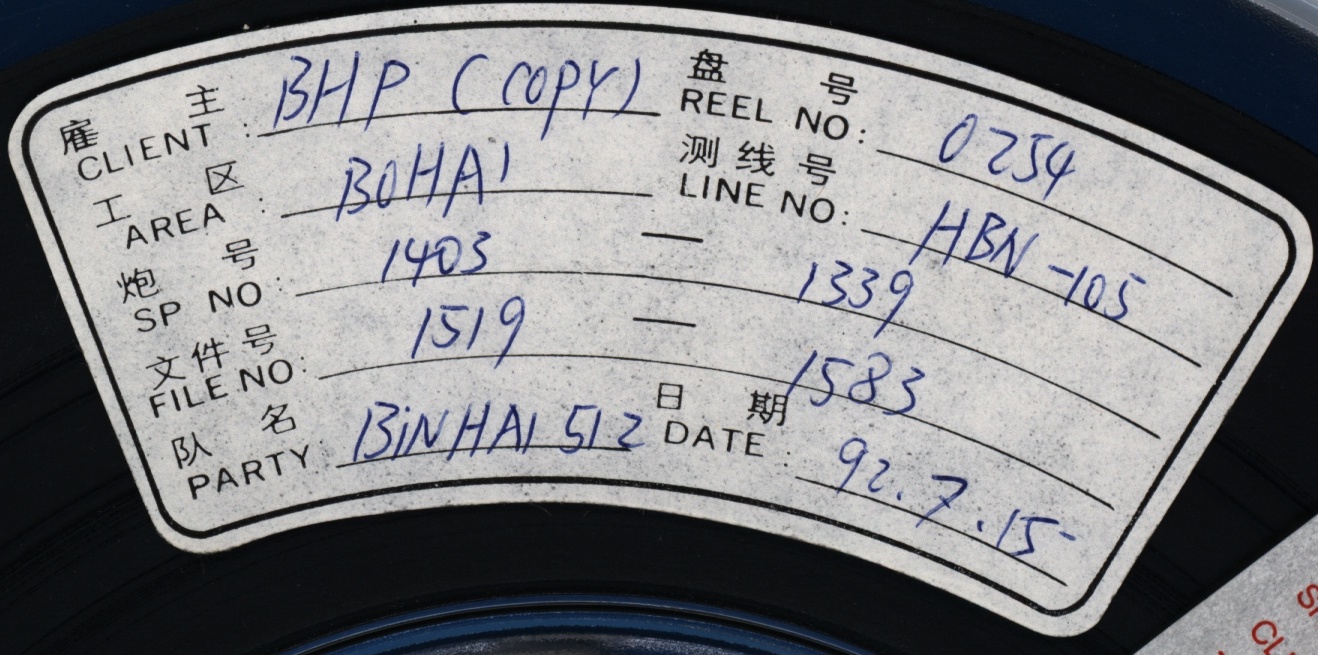 雇主 CLIENT: BHP (COPY)
盘号 REEL NO: 0254
工区 AREA: BOHAI
测线号 LINE NO: HBN-105
炮号 SP NO: 1403 — 1339
文件号 FILE NO: 1519 — 1583
队名 PARTY: BiNHAI 512
日期 DATE: 92.7.15